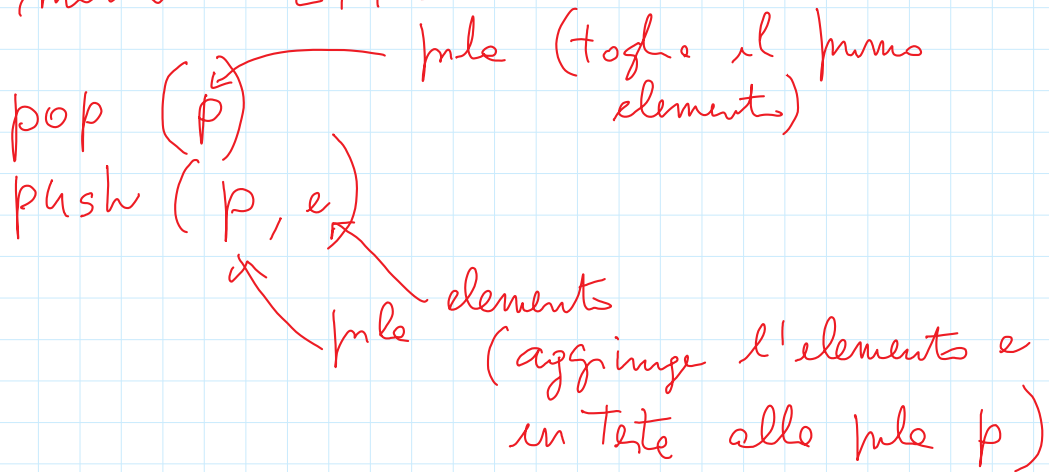 pila (toglie il primo
elemento)
pop (p)
push (p, e)
elemento
pila
(aggiunge l'elemento e
in testa alla pila p)